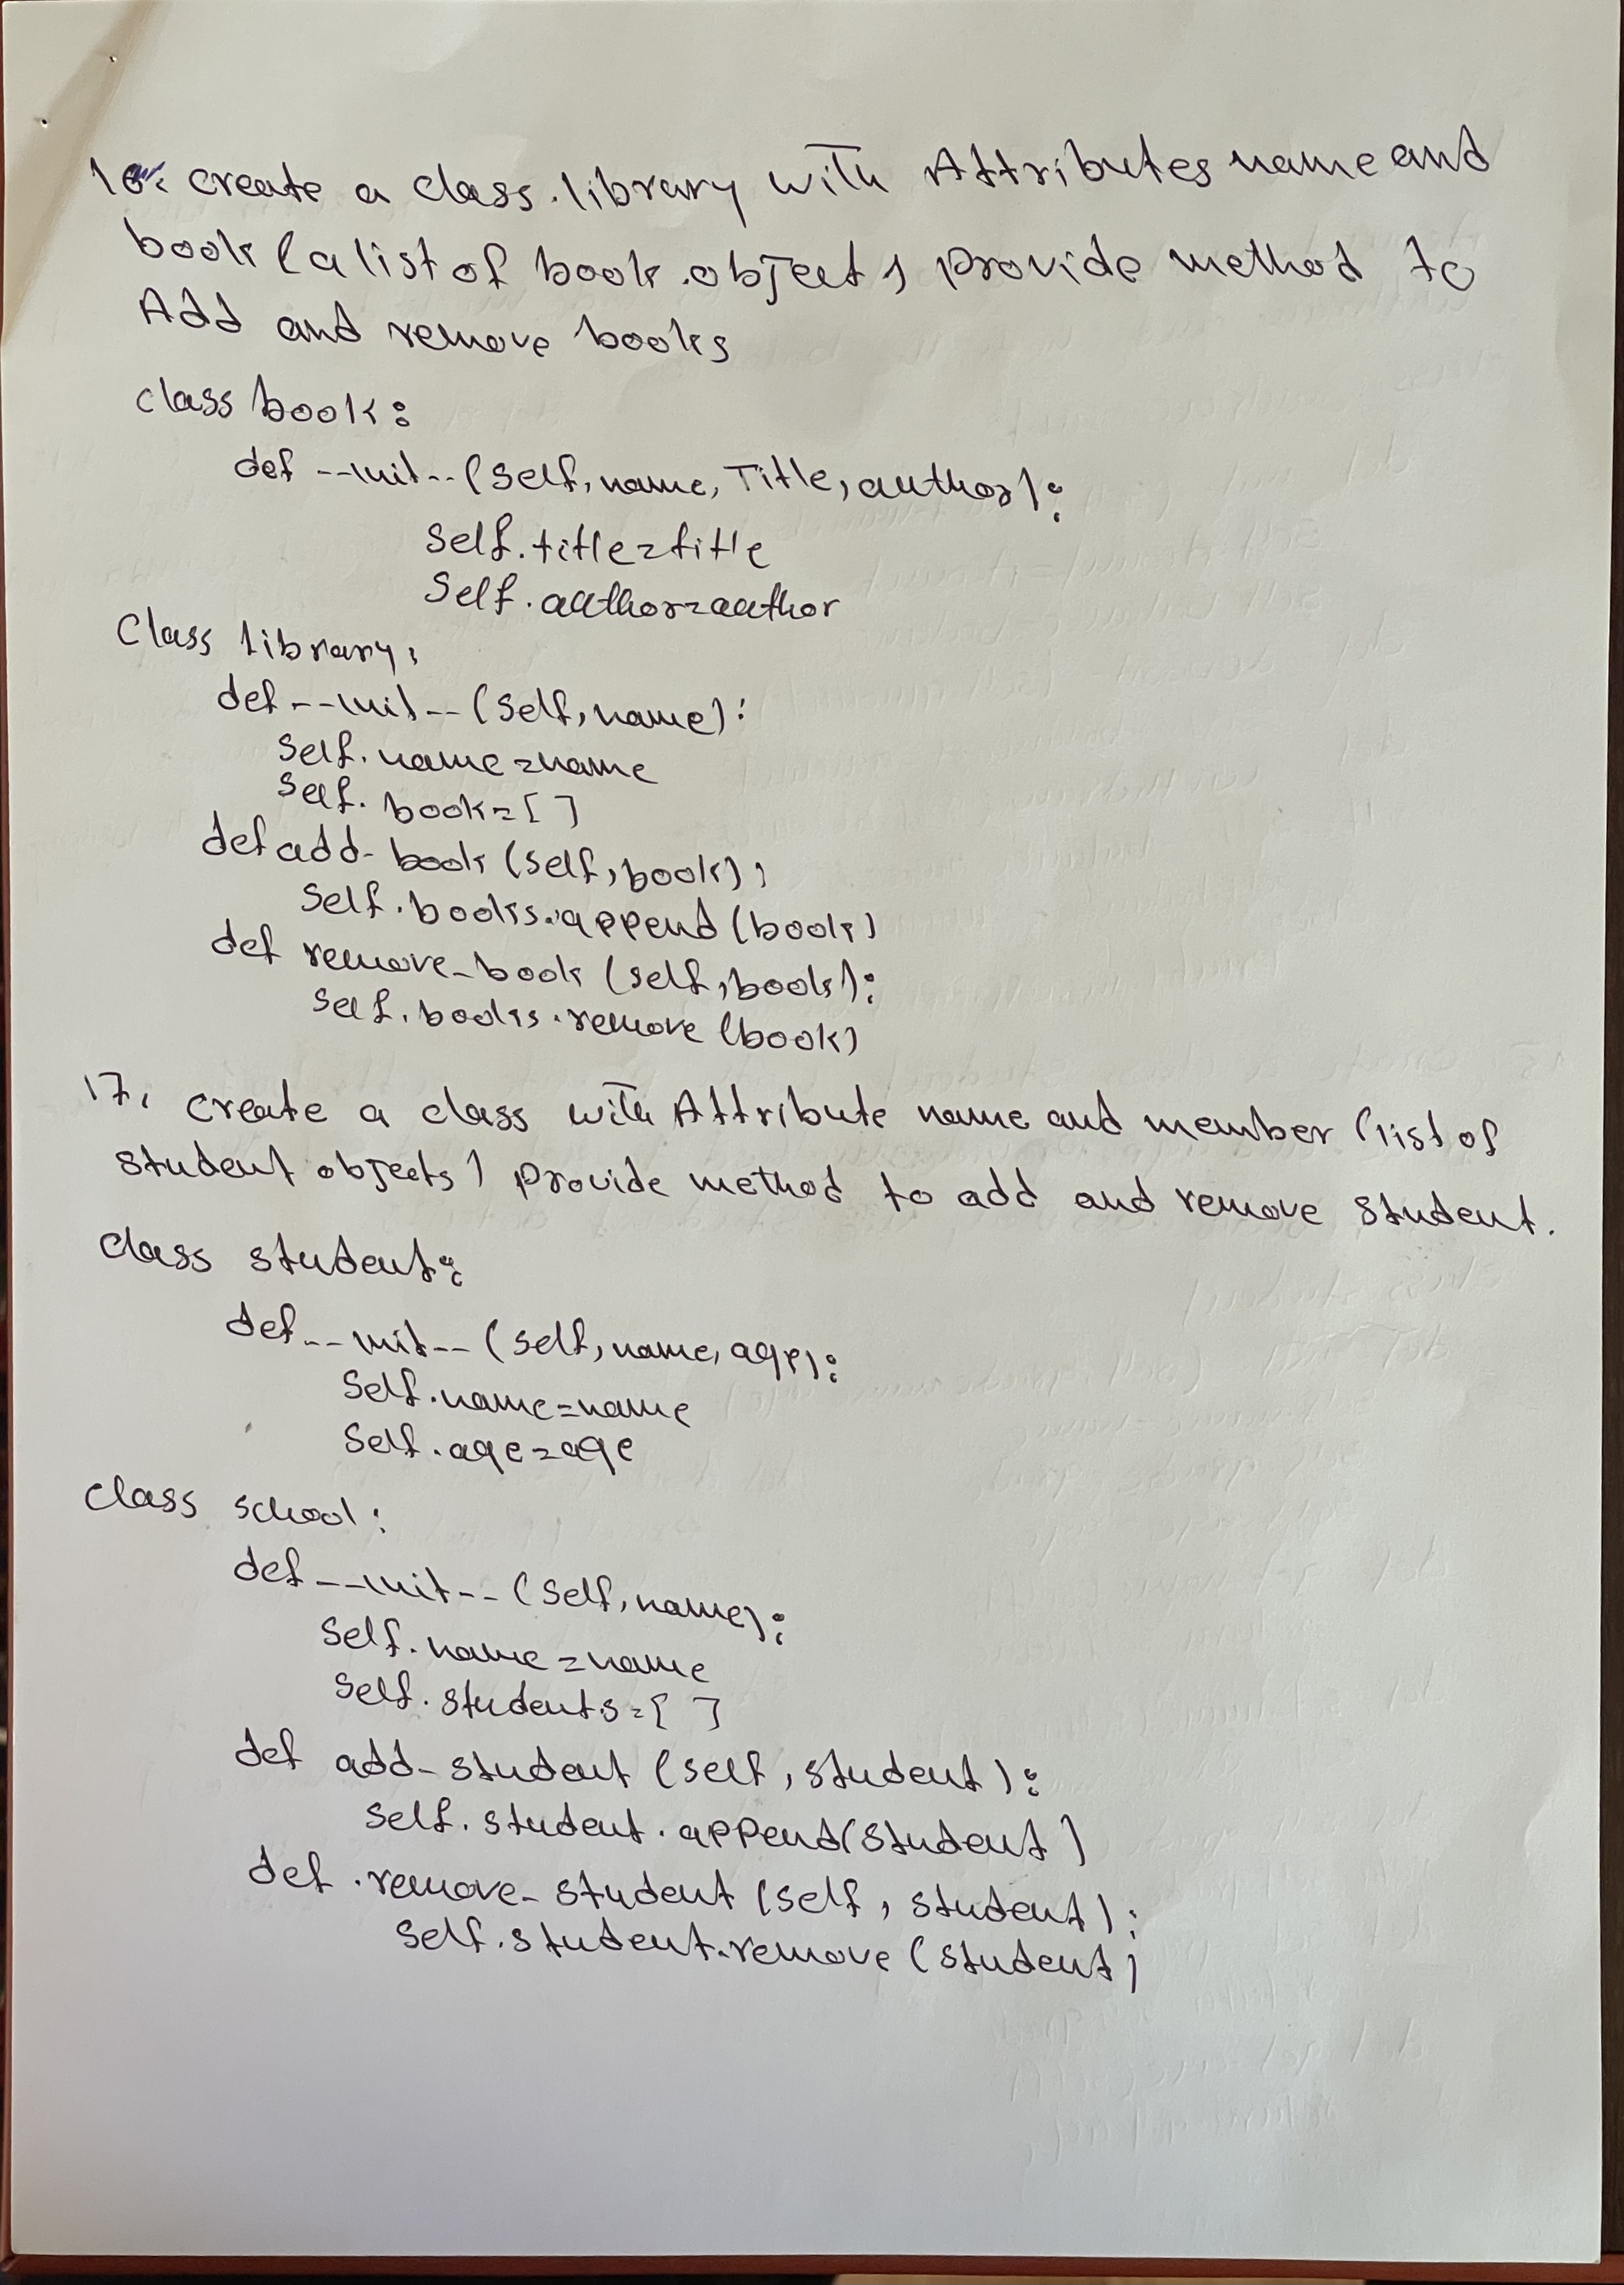 16. Create a class library with Attributes name and
book (a list of book object) provide method to
Add and remove books
class book:
def __init__(self, name, Title, author):
self.title=title
self.author=author
Class library:
def __init__(self, name):
self.name=name
self.book=[ ]
def add_book (self, book):
self.books.append(book)
def remove_book (self, book):
self.books.remove (book)
17. create a class with Attribute name and member (list of
student objects) provide method to add and remove student.
class student:
def __init__ (self, name, age):
self.name=name
self.age=age
class school:
def __init__ (self, name):
self.name=name
self.students=[ ]
def add_student (self, student):
self.student.append(student)
def remove_student (self, student):
self.student.remove (student)